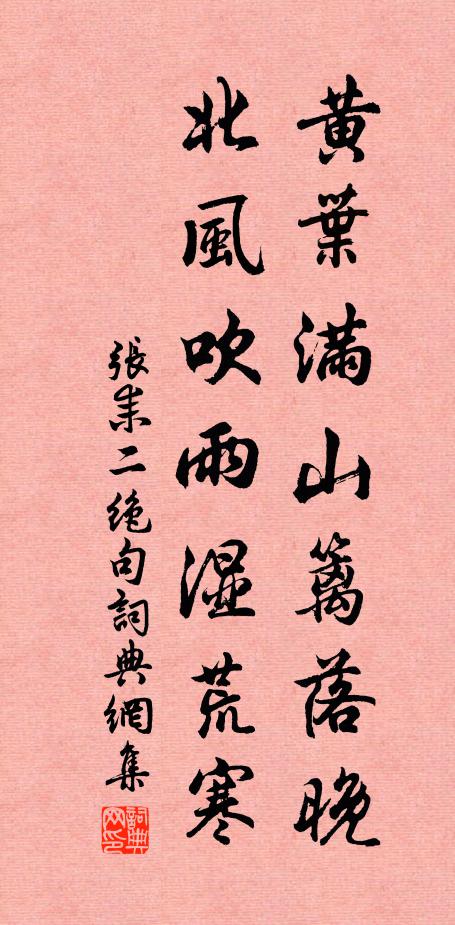 黄葉满山籬落晚
北風吹雨湿荒寒
張耒二絶句詞典網集
詞典
网印